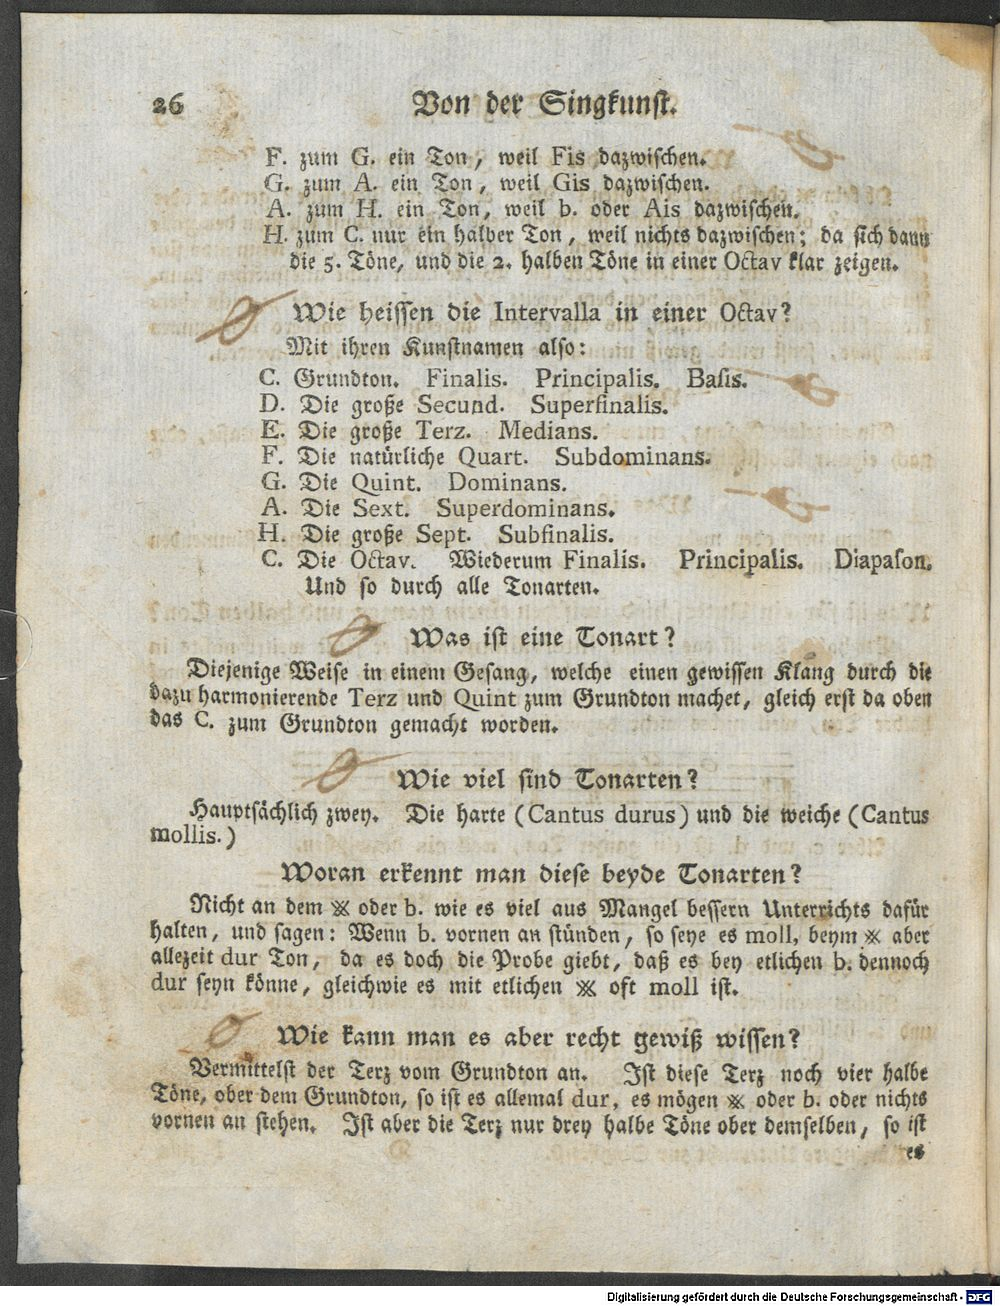 26 Von der Singkunst.
F. zum G. ein Ton, weil Fis dazwischen.
G. zum A. ein Ton, weil Gis dazwischen.
A. zum H. ein Ton, weil b. oder Ais dazwischen.
H. zum C. nur ein halber Ton, weil nichts dazwischen; da sich dann
die 5. Töne, und die 2. halben Töne in einer Octav klar zeigen.
Wie heissen die Intervalla in einer Octav?
Mit ihren Kunstnamen also:
C. Grundton. Finalis. Principalis. Basis.
D. Die große Secund. Superfinalis.
E. Die große Terz. Medians.
F. Die natürliche Quart. Subdominans.
G. Die Quint. Dominans.
A. Die Sext. Superdominans.
H. Die große Sept. Subfinalis.
C. Die Octav. Wiederum Finalis. Principalis. Diapason.
Und so durch alle Tonarten.
Was ist eine Tonart?
Diejenige Weise in einem Gesang, welche einen gewissen Klang durch die
dazu harmonierende Terz und Quint zum Grundton machet, gleich erst da oben
das C. zum Grundton gemacht worden.
Wie viel sind Tonarten?
Hauptsächlich zwey. Die harte (Cantus durus) und die weiche (Cantus
mollis.)
Woran erkennt man diese beyde Tonarten?
Nicht an dem ※ oder b. wie es viel aus Mangel bessern Unterrichts dafür
halten, und sagen: Wenn b. vornen an stünden, so seye es moll, beym ※ aber
allezeit dur Ton, da es doch die Probe giebt, daß es bey etlichen b. dennoch
dur seyn könne, gleichwie es mit etlichen ※ oft moll ist.
Wie kann man es aber recht gewiß wissen?
Vermittelst der Terz vom Grundton an. Ist diese Terz noch vier halbe
Töne, ober dem Grundton, so ist es allemal dur, es mögen ※ oder b. oder nichts
vornen an stehen. Ist aber die Terz nur drey halbe Töne ober demselben, so ist
es
Digitalisierung gefördert durch die Deutsche Forschungsgemeinschaft - DFG